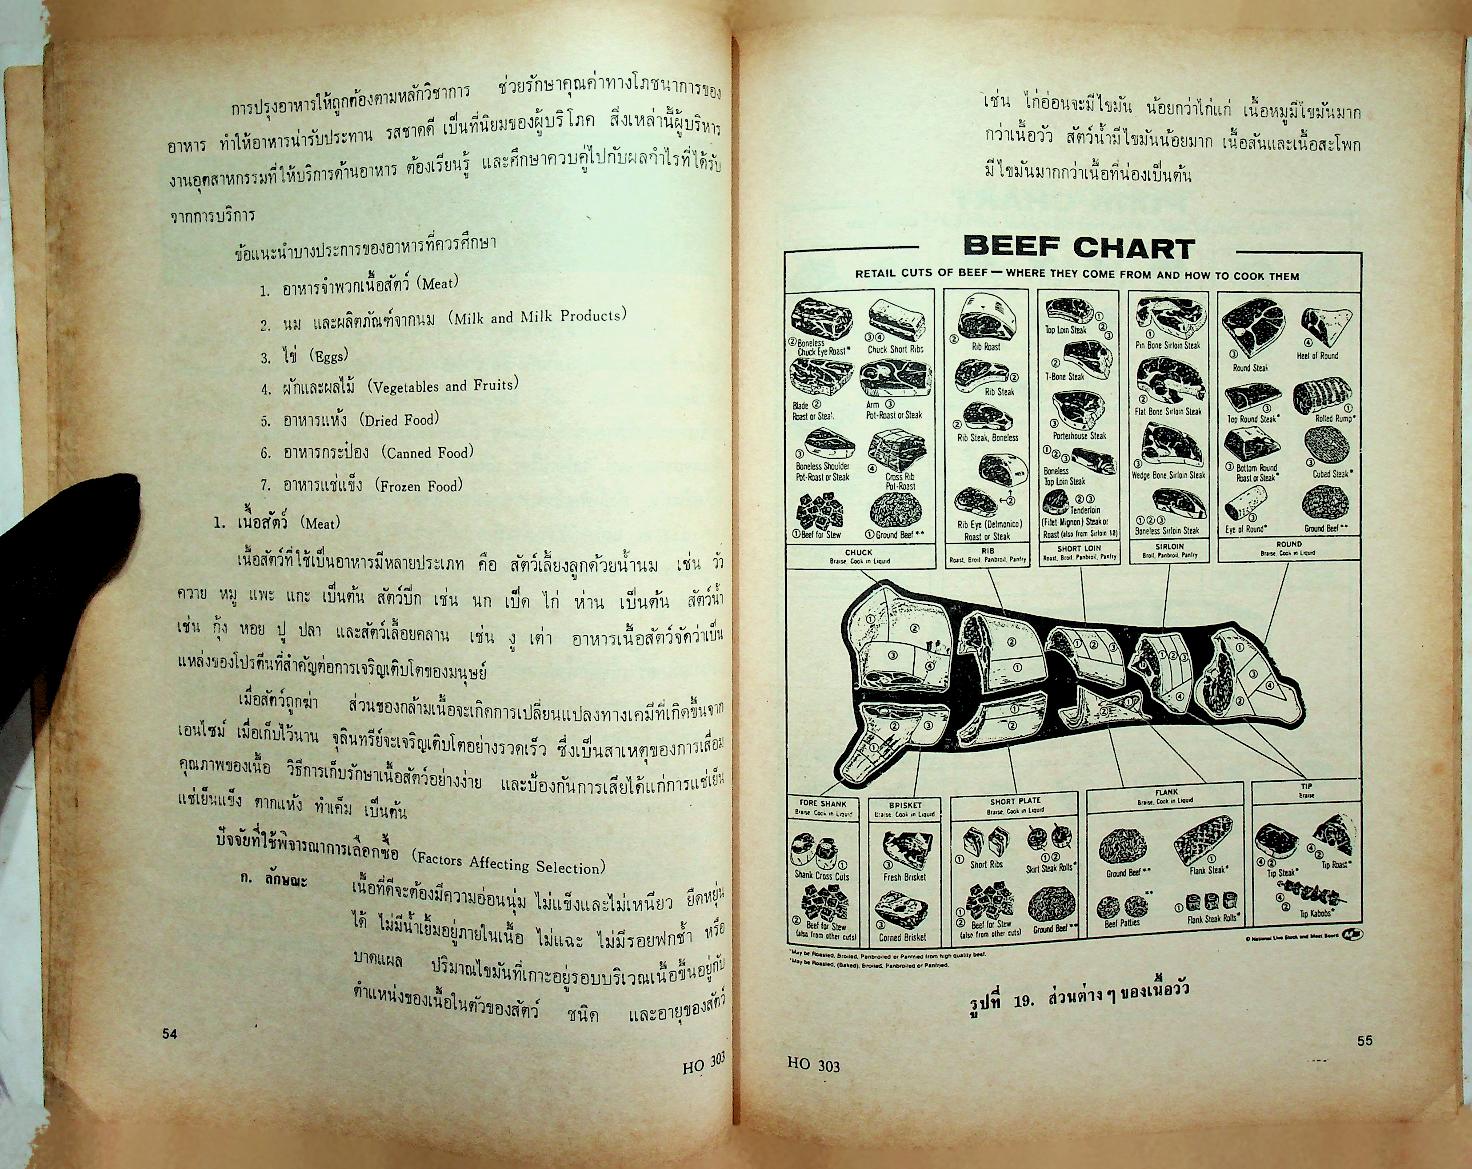 การปรุงอาหารให้ถูกต้องตามหลักวิชาการ ช่วยรักษาคุณค่าทางโภชนาการของ
อาหาร ทำให้อาหารน่ารับประทาน รสชาดดี เป็นที่นิยมของผู้บริโภค สิ่งเหล่านี้ผู้บริหาร
งานอุตสาหกรรมที่ให้บริการด้านอาหาร ต้องเรียนรู้ และศึกษาควบคู่ไปกับผลกำไรที่ได้รับ
จากการบริการ
ข้อแนะนำบางประการของอาหารที่ควรศึกษา
1. อาหารจำพวกเนื้อสัตว์ (Meat)
2. นม และผลิตภัณฑ์จากนม (Milk and Milk Products)
3. ไข่ (Eggs)
4. ผักและผลไม้ (Vegetables and Fruits)
5. อาหารแห้ง (Dried Food)
6. อาหารกระป๋อง (Canned Food)
7. อาหารแช่แข็ง (Frozen Food)
1. เนื้อสัตว์ (Meat)
เนื้อสัตว์ที่ใช้เป็นอาหารมีหลายประเภท คือ สัตว์เลี้ยงลูกด้วยน้ำนม เช่น วัว
ควาย หมู แพะ แกะ เป็นต้น สัตว์ปีก เช่น นก เป็ด ไก่ ห่าน เป็นต้น สัตว์น้ำ
เช่น กุ้ง หอย ปู ปลา และสัตว์เลื้อยคลาน เช่น งู เต่า อาหารเนื้อสัตว์จัดว่าเป็น
แหล่งของโปรตีนที่สำคัญต่อการเจริญเติบโตของมนุษย์
เมื่อสัตว์ถูกฆ่า ส่วนของกล้ามเนื้อจะเกิดการเปลี่ยนแปลงทางเคมีที่เกิดขึ้นจาก
เอนไซม์ เมื่อเก็บไว้นาน จุลินทรีย์จะเจริญเติบโตอย่างรวดเร็ว ซึ่งเป็นสาเหตุของการเสื่อม
คุณภาพของเนื้อ วิธีการเก็บรักษาเนื้อสัตว์อย่างง่าย และป้องกันการเสียได้แก่การแช่เย็น
แช่เย็นแข็ง ตากแห้ง ทำเค็ม เป็นต้น
ปัจจัยที่ใช้พิจารณาการเลือกซื้อ (Factors Affecting Selection)
ก. ลักษณะ เนื้อที่ดีจะต้องมีความอ่อนนุ่ม ไม่แข็งและไม่เหนียว ยืดหยุ่น
ได้ ไม่มีน้ำเยิ้มอยู่ภายในเนื้อ ไม่แฉะ ไม่มีรอยฟกช้ำ หรือ
บาดแผล ปริมาณไขมันที่เกาะอยู่รอบบริเวณเนื้อขึ้นอยู่กับ
ตำแหน่งของเนื้อในตัวของสัตว์ ชนิด และอายุของสัตว์
54
HO 303
เช่น ไก่อ่อนจะมีไขมัน น้อยกว่าไก่แก่ เนื้อหมูมีไขมันมาก
กว่าเนื้อวัว สัตว์น้ำมีไขมันน้อยมาก เนื้อสันและเนื้อสะโพก
มีไขมันมากกว่าเนื้อที่น่องเป็นต้น
BEEF CHART
RETAIL CUTS OF BEEF — WHERE THEY COME FROM AND HOW TO COOK THEM
② Boneless Chuck Eye Roast*
③④ Chuck Short Ribs
Blade ② Roast or Steak
Arm ③ Pot-Roast or Steak
③ Boneless Shoulder Pot-Roast or Steak
④ Cross Rib Pot-Roast
① Beef for Stew
① Ground Beef **
CHUCK
Braise, Cook in Liquid
② Rib Roast
② Rib Steak
② Rib Steak, Boneless
②
Rib Eye (Delmonico) Roast or Steak
RIB
Roast, Broil, Panbroil, Panfry
① ② ③
Top Loin Steak
② T-Bone Steak
③ Porterhouse Steak
①②③ Boneless Top Loin Steak
②③ Tenderloin (Filet Mignon) Steak or Roast (also from Sirloin 1a)
SHORT LOIN
Roast, Broil, Panbroil, Panfry
① Pin Bone Sirloin Steak
② Flat Bone Sirloin Steak
③ Wedge Bone Sirloin Steak
①②③ Boneless Sirloin Steak
SIRLOIN
Broil, Panbroil, Panfry
③ Round Steak
④ Heel of Round
③ Top Round Steak*
① Rolled Rump*
③ Bottom Round Roast or Steak*
③ Cubed Steak*
③ Eye of Round*
Ground Beef **
ROUND
Braise, Cook in Liquid
① ② ③ ④
① ②
① ② ③
① ② ③ ④
① ② ③ ④
① ② ③
① ②
FORE SHANK
Braise, Cook in Liquid
① Shank Cross Cuts
② Beef for Stew (also from other cuts)
BRISKET
Braise, Cook in Liquid
③ Fresh Brisket
③ Corned Brisket
SHORT PLATE
Braise, Cook in Liquid
① Short Ribs
①② Skirt Steak Rolls*
① ② Beef for Stew (also from other cuts)
Ground Beef **
FLANK
Braise, Cook in Liquid
Ground Beef **
① Flank Steak*
Beef Patties **
① Flank Steak Rolls*
TIP
Braise
④② Tip Steak*
④② Tip Roast*
④② Tip Kabobs*
*May be Roasted, Broiled, Panbroiled or Panfried from high quality beef.
**May be Roasted, (Baked), Broiled, Panbroiled or Panfried.
© National Live Stock and Meat Board
รูปที่ 19. ส่วนต่าง ๆ ของเนื้อวัว
55
HO 303